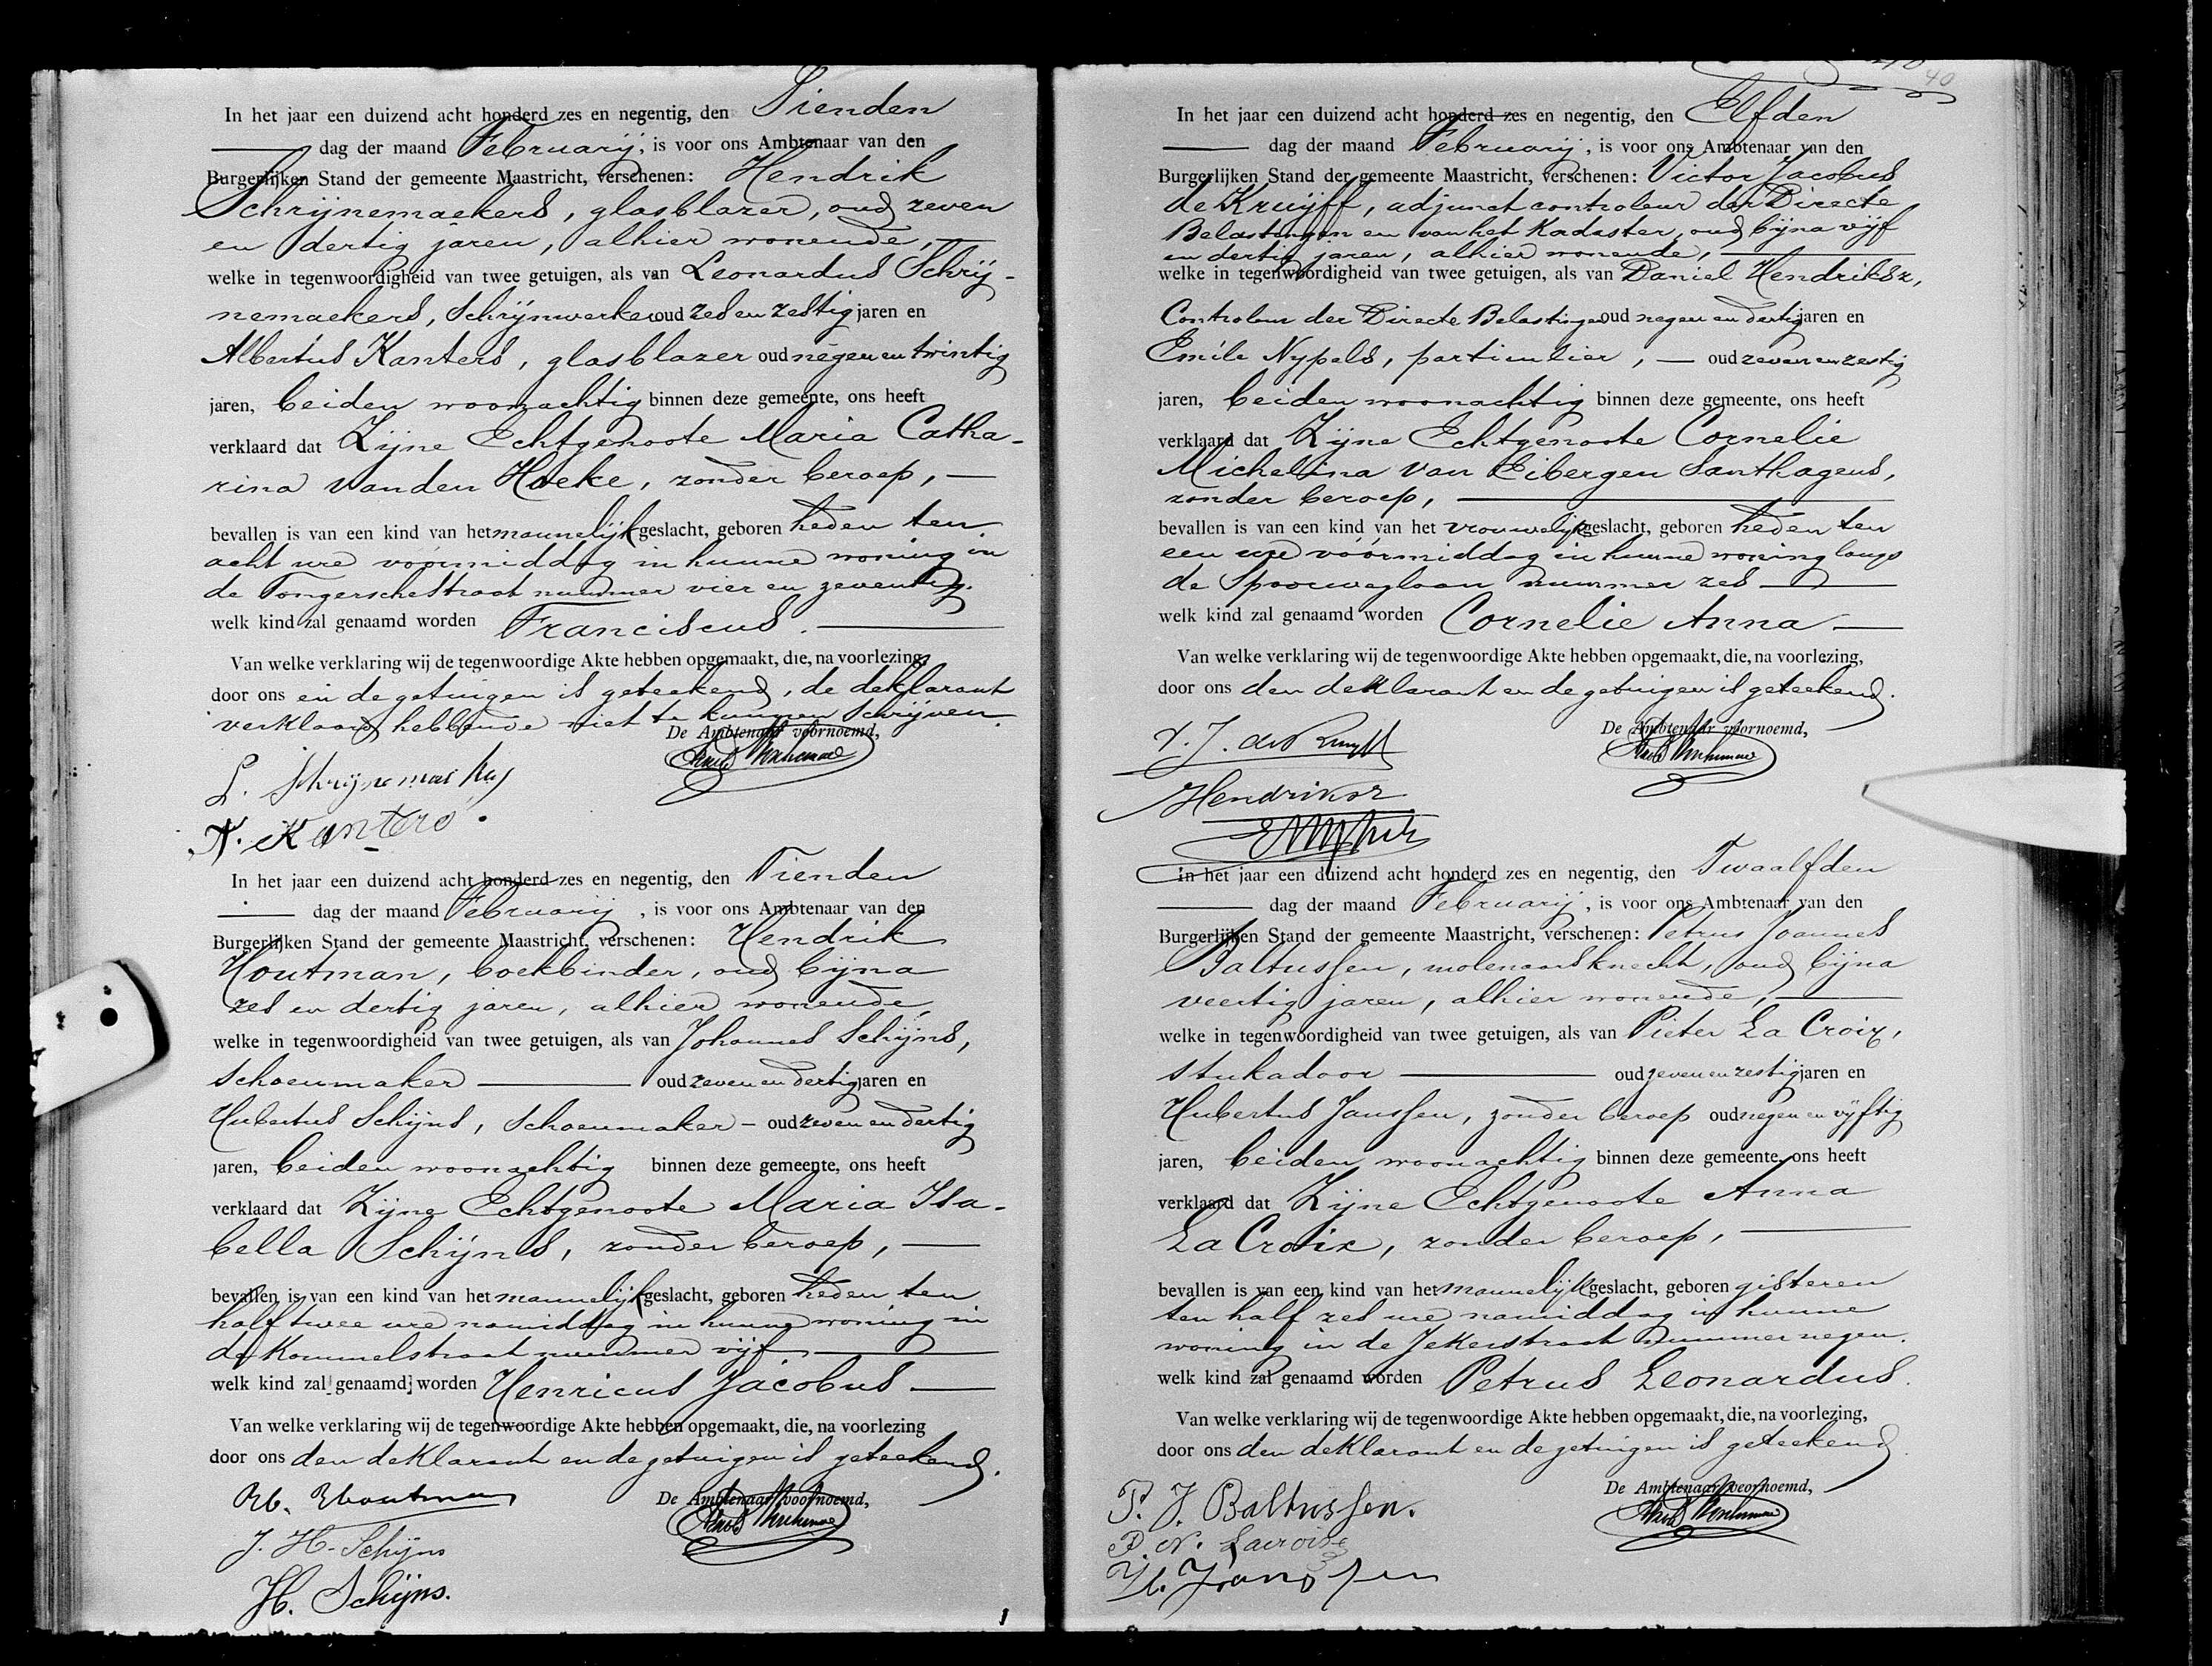 In het jaar een duizend acht honderd zes en negentig, den Tienden
dag der maand Februarij, is voor ons Ambtenaar van den
Burgerlijken Stand der gemeente Maastricht, verschenen: Hendrik
Schrijnemaekers, glasblazer, oud zeven
en dertig jaren, alhier wonende,
welke in tegenwoordigheid van twee getuigen, als van Leonardus Schrij-
nemaekers, Schrijnwerker oud zes en zestig jaren en
Albertus Kanters, glasblazer oud negen en twintig
jaren, beiden woonachtig binnen deze gemeente, ons heeft
verklaard dat Zijne Echtgenoote Maria Catha-
rina vanden Hoeke, zonder beroep,
bevallen is van een kind van het mannelijk geslacht, geboren heden ten
acht ure voormiddag in hunne woning in
de Tongerschestraat nummer vier en zeventig.
welk kind zal genaamd worden Franciscus.
Van welke verklaring wij de tegenwoordige Akte hebben opgemaakt, die, na voorlezing
door ons en de getuigen is geteekend, de deklarant
verklaard hebbende niet te kunnen Schrijven.
De Ambtenaar voornoemd,
A. Kanters.
In het jaar een duizend acht honderd zes en negentig, den Tienden
dag der maand Februarij, is voor ons Ambtenaar van den
Burgerlijken Stand der gemeente Maastricht, verschenen: Hendrik
Houtman, boekbinder, oud bijna
zes en dertig jaren, alhier wonende,
welke in tegenwoordigheid van twee getuigen, als van Johannes Schijns,
Schoenmaker oud zeven en dertig jaren en
Hubertus Schijns, Schoenmaker - oud zeven en dertig
jaren, beiden woonachtig binnen deze gemeente, ons heeft
verklaard dat Zijne Echtgenoote Maria Isa-
bella Schijns, zonder beroep,
bevallen is van een kind van het mannelijk geslacht, geboren heden ten
half twee ure namiddag in hunne woning in
de Kommelstraat nummer vijf
welk kind zal genaamd worden Henricus Jacobus
Van welke verklaring wij de tegenwoordige Akte hebben opgemaakt, die, na voorlezing
door ons den deklarant en de getuigen is geteekend.
De Ambtenaar voornoemd,
H. Houtman
J. H. Schijns
H. Schijns.
40
In het jaar een duizend acht honderd zes en negentig, den Elfden
dag der maand Februarij, is voor ons Ambtenaar van den
Burgerlijken Stand der gemeente Maastricht, verschenen: Victor Jacobus
de Kruijff, adjunct controleur der Directe
Belastingen en van het Kadaster, oud bijna vijf
en dertig jaren, alhier wonende,
welke in tegenwoordigheid van twee getuigen, als van Daniel Hendriksz,
Controleur der Directe Belastingen oud negen en dertig jaren en
Emile Nypels, particulier, oud zeven en zestig
jaren, beiden woonachtig binnen deze gemeente, ons heeft
verklaard dat Zijne Echtgenoote Cornelie
Michelina van Eibergen Santhagens,
zonder beroep,
bevallen is van een kind van het vrouwelijk geslacht, geboren heden ten
een ure vóórmiddag in hunne woning langs
de Spoorweglaan nummer zes
welk kind zal genaamd worden Cornelie Anna
Van welke verklaring wij de tegenwoordige Akte hebben opgemaakt, die, na voorlezing,
door ons den deklarant en de getuigen is geteekend.
De Ambtenaar voornoemd,
V. J. de Kruyff
Hendriksz
In het jaar een duizend acht honderd zes en negentig, den Twaalfden
dag der maand Februarij, is voor ons Ambtenaar van den
Burgerlijken Stand der gemeente Maastricht, verschenen: Petrus Joannes
Baltussen, molenaarsknecht, oud bijna
veertig jaren, alhier wonende,
welke in tegenwoordigheid van twee getuigen, als van Pieter La Croix,
stukadoor oud zeven en zestig jaren en
Hubertus Janssen, zonder beroep oud negen en vijftig
jaren, beiden woonachtig binnen deze gemeente, ons heeft
verklaard dat Zijne Echtgenoote Anna
La Croix, zonder beroep,
bevallen is van een kind van het mannelijk geslacht, geboren gisteren
ten half zes ure namiddag in hunne
woning in de Jekerstraat nummer negen.
welk kind zal genaamd worden Petrus Leonardus.
Van welke verklaring wij de tegenwoordige Akte hebben opgemaakt, die, na voorlezing,
door ons den deklarant en de getuigen is geteekend.
De Ambtenaar voornoemd,
P. J. Baltussen.
P. N. Lacroix
H. Janssen